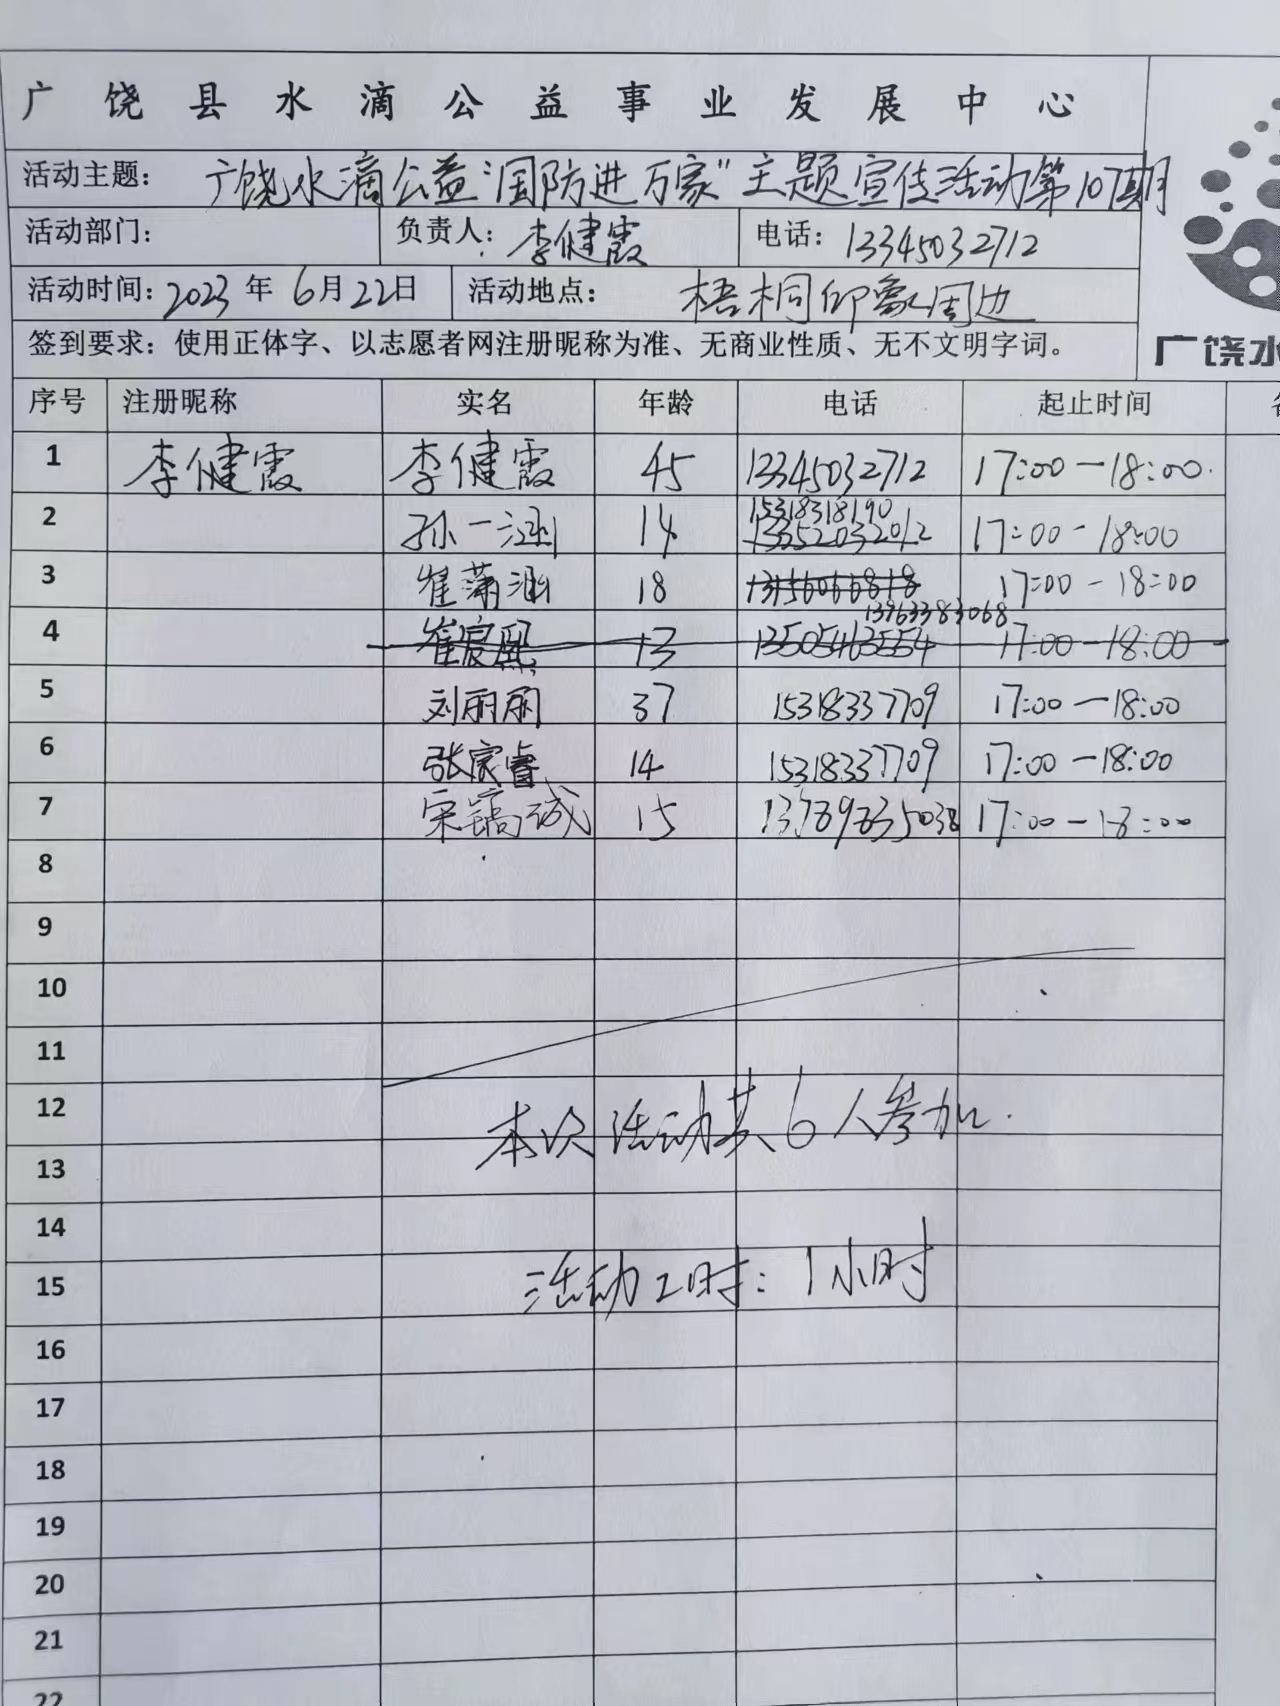 广饶县水滴公益事业发展中心
活动主题： 广饶水滴公益“国防进万家”主题宣传活动第107期
活动部门： 负责人：李健霞 电话：13345032712
活动时间：2023年6月22日 活动地点： 梧桐印象周边
签到要求：使用正体字、以志愿者网注册昵称为准、无商业性质、无不文明字词。
广饶水
序号 注册昵称 实名 年龄 电话 起止时间
1 李健霞 李健霞 45 13345032712 17:00—18:00.
15318318190
2 孙一涵 14 13352032012 17:00-18:00
3 崔潇涵 18 13156066818 17:00-18:00
13963383068
4 崔宸熙 13 13505463554 17:00-18:00
5 刘丽丽 37 15318337709 17:00—18:00
6 张宸睿 14 15318337709 17:00-18:00
7 宋镐诚 15 17:00-18:00
8
9
10
11
12
本次活动共6人参加.
13
14
15
活动工时：1小时
16
17
18
19
20
21
22